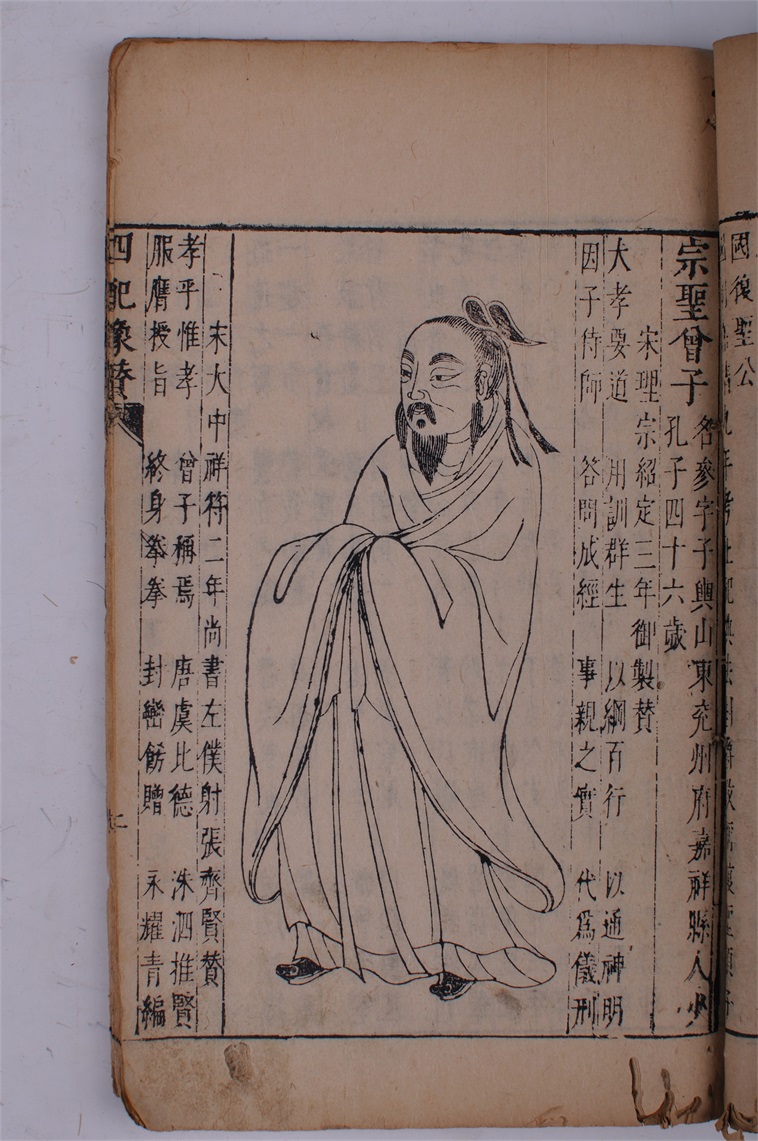 國復聖公
宗聖曾子 名參字子輿山東兖州府嘉祥縣人少
孔子四十六歲
宋理宗紹定三年御製贊
大孝要道 用訓群生 以綱百行 以通神明
因子侍師 答問成經 事親之實 代爲儀刑
宋大中祥符二年尚書左僕射張齊賢贊
孝乎惟孝 曾子稱焉 唐虞比德 洙泗推賢
服膺授旨 終身拳拳 封巒飭贈 永耀青編
四配像贊